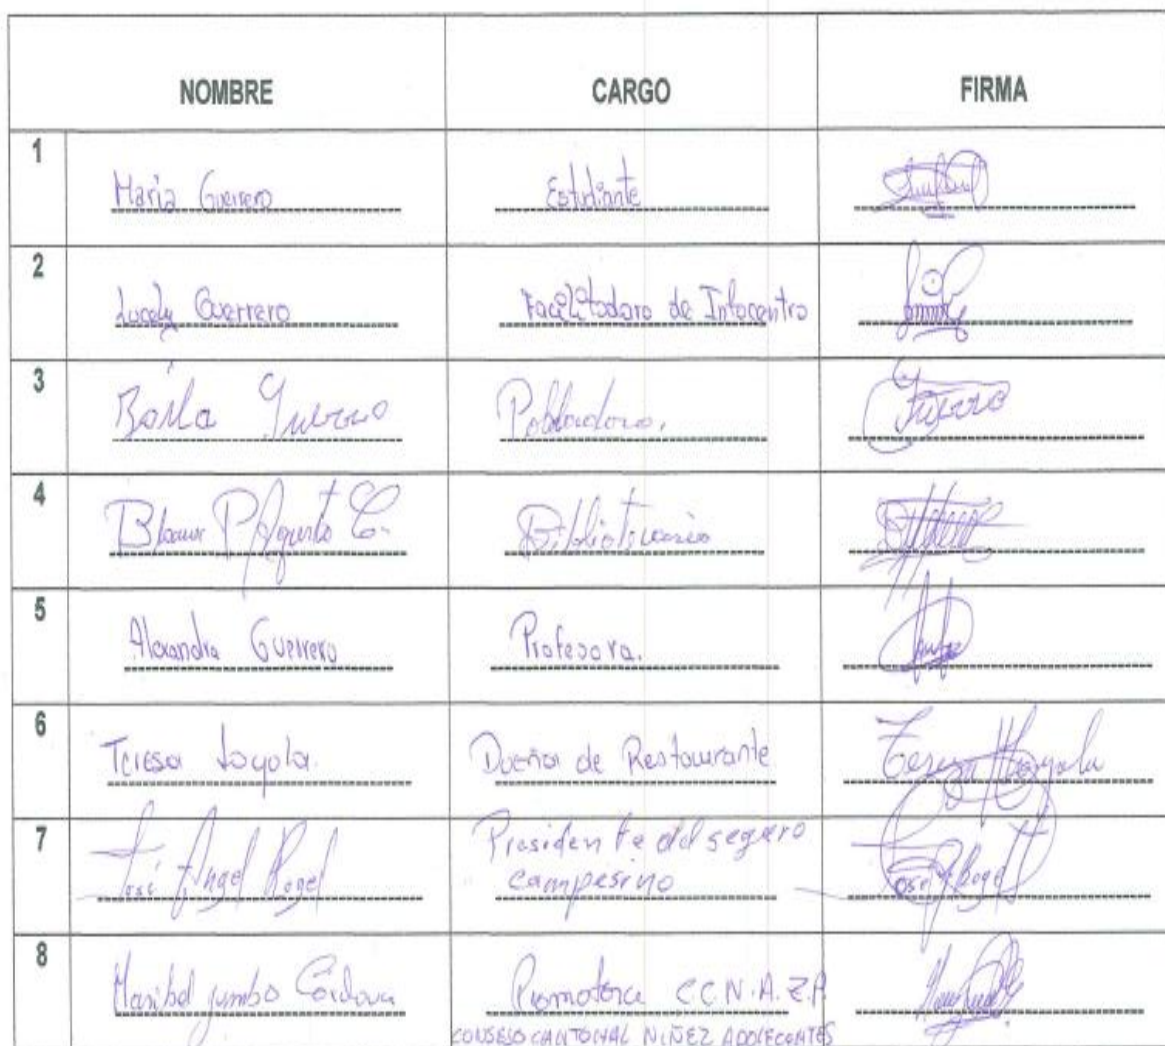 NOMBRE CARGO FIRMA
1 Maria Guerrero Estudiante
2 Lucely Guerrero Facilitadora de Infocentro
3 Guerrero Pobladora.
4 P. Agurto C. Bibliotecario
5 Alexandra Guerrero Profesora.
6 Teresa Loyola. Dueña de Restaurante Teresa Loyola
7 José Angel Rogel Presidente del seguro
campesino José Rogel
8 Maribel jumbo Córdova Promotora C.C.N.A.Z.P.
CONSEJO CANTONAL NIÑEZ ADOLECENTES